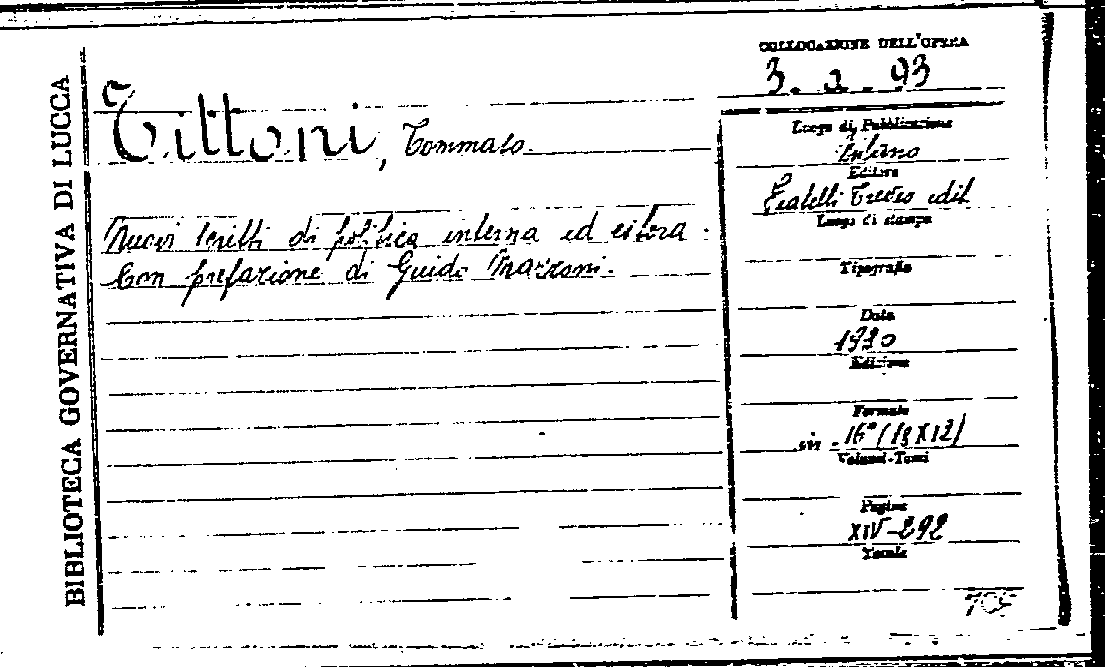 BIBLIOTECA GOVERNATIVA DI LUCCA
Tittoni, Tommaso.
Nuovi scritti di politica interna ed estera.
Con prefazione di Guido Mazzoni.
COLLOCAZIONE DELL'OPERA
3. 2. 93
Luogo di Pubblicazione
Milano
Editore
Fratelli Treves edit
Luogo di stampa
Tipografia
Data
1920
Edizione
Formato
in 16° (18X12)
Volumi-Tomi
Pagine
XIV-292
Tavole